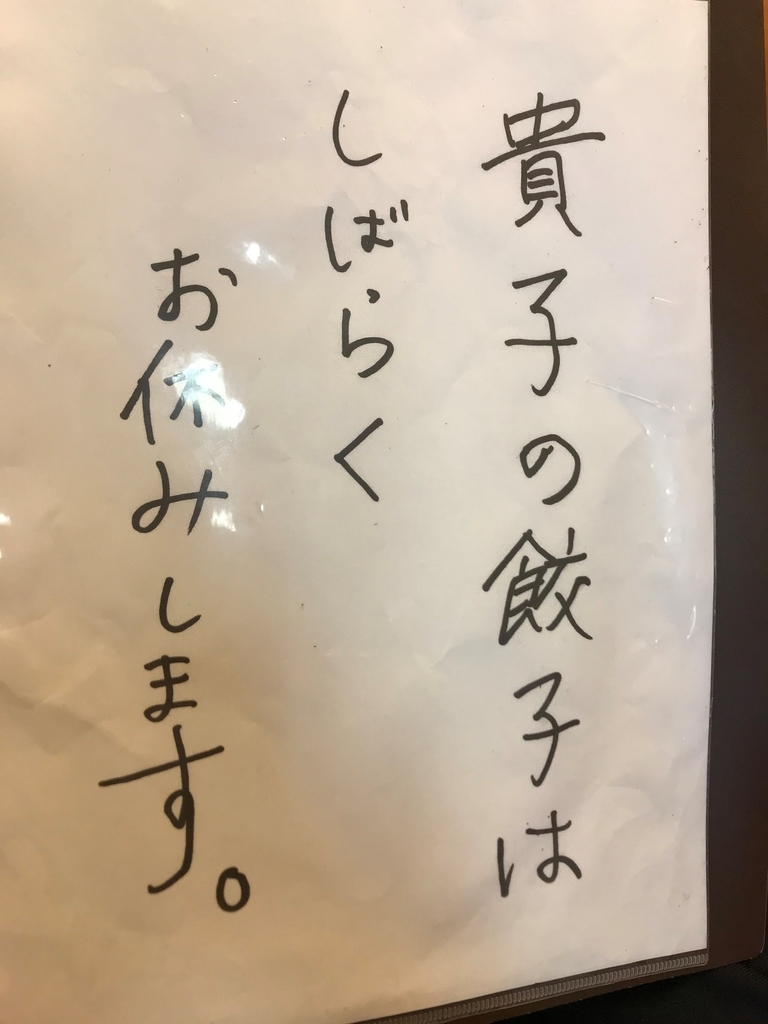 貴子の餃子は
しばらく
お休みします。